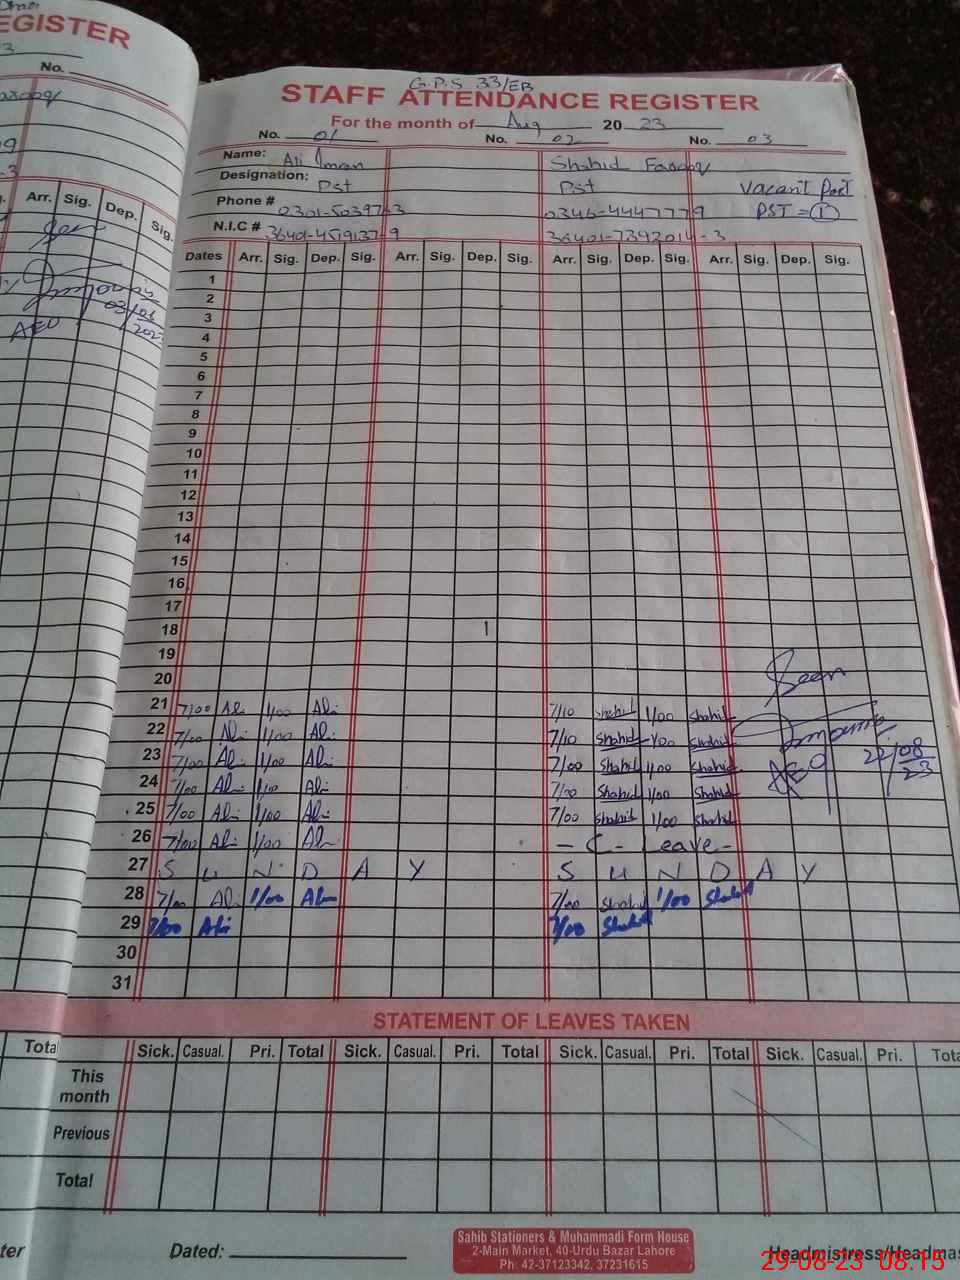 EGISTER
No.
Arr. Sig. Dep. Sig.
Seen
AEO
G.P.S 33/EB
STAFF ATTENDANCE REGISTER
For the month of Aug 2023
No. 01 No. 02 No. 03
Name: Ali Imran Shahid Farooq
Designation: Pst Pst Vacant Post
Phone # 0346-4447779 PST = 1
N.I.C # 36401-7392014-3
Dates Arr. Sig. Dep. Sig. Arr. Sig. Dep. Sig. Arr. Sig. Dep. Sig. Arr. Sig. Dep. Sig.
1
2
3
4
5
6
7
8
9
10
11
12
13
14
15
16
17
18
19
20
Seen
21 7/00 Ali 1/00 Ali 7/10 Shahid 1/00 Shahid
22 7/00 Ali 1/00 Ali 7/10 Shahid 1/00 Shahid
23 7/00 Ali 1/00 Ali 7/00 Shahid 1/00 Shahid AEO 22/08/23
24 7/00 Ali 1/00 Ali 7/00 Shahid 1/00 Shahid
25 7/00 Ali 1/00 Ali 7/00 Shahid 1/00 Shahid
26 7/00 Ali 1/00 Ali - C - Leave -
27 S U N D A Y S U N D A Y
28 7/00 Ali 1/00 Ali 7/00 Shahid 1/00 Shahid
29 7/00 Ali 7/00 Shahid
30
31
STATEMENT OF LEAVES TAKEN
Total Sick. Casual. Pri. Total Sick. Casual. Pri. Total Sick. Casual. Pri. Total Sick. Casual. Pri. Tota
This month
Previous
Total
Dated:
Sahib Stationers & Muhammadi Form House
2-Main Market, 40-Urdu Bazar Lahore
Ph: 42-37123342, 37231615
Headmistress/Headmas
29-08-23 08:15